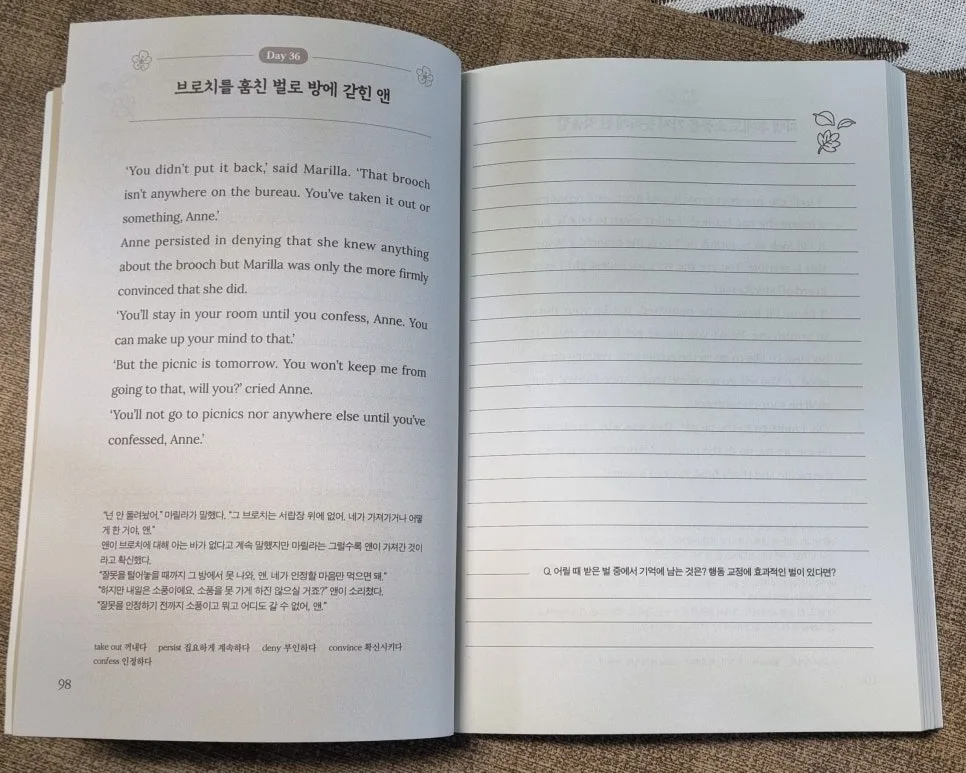 Day 36
브로치를 훔친 벌로 방에 갇힌 앤
‘You didn’t put it back,’ said Marilla. ‘That brooch
isn’t anywhere on the bureau. You’ve taken it out or
something, Anne.’
Anne persisted in denying that she knew anything
about the brooch but Marilla was only the more firmly
convinced that she did.
‘You’ll stay in your room until you confess, Anne. You
can make up your mind to that.’
‘But the picnic is tomorrow. You won’t keep me from
going to that, will you?’ cried Anne.
‘You’ll not go to picnics nor anywhere else until you’ve
confessed, Anne.’
“넌 안 돌려놨어.” 마릴라가 말했다. “그 브로치는 서랍장 위에 없어. 네가 가져가거나 어떻
게 한 거야, 앤.”
앤이 브로치에 대해 아는 바가 없다고 계속 말했지만 마릴라는 그럴수록 앤이 가져간 것이
라고 확신했다.
“잘못을 털어놓을 때까지 그 방에서 못 나와, 앤. 네가 인정할 마음만 먹으면 돼.”
“하지만 내일은 소풍이에요. 소풍을 못 가게 하진 않으실 거죠?” 앤이 소리쳤다.
“잘못을 인정하기 전까지 소풍이고 뭐고 어디도 갈 수 없어, 앤.”
take out 꺼내다 persist 집요하게 계속하다 deny 부인하다 convince 확신시키다
confess 인정하다
98
Q. 어릴 때 받은 벌 중에서 기억에 남는 것은? 행동 교정에 효과적인 벌이 있다면?